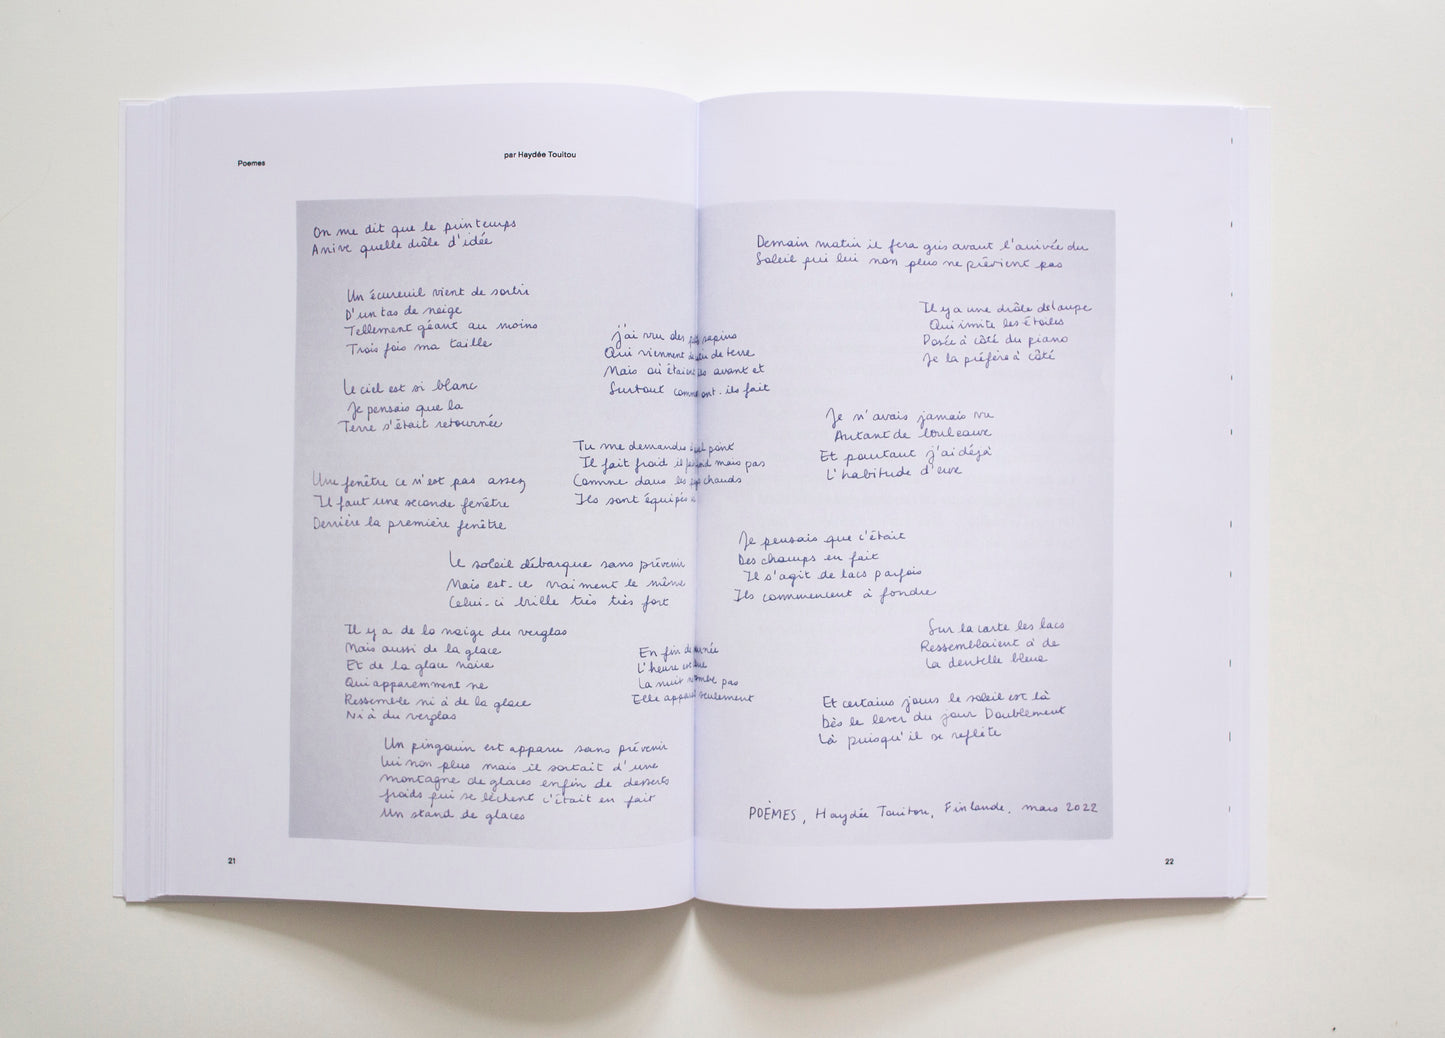 Poemes
par Haydée Touitou
On me dit que le printemps
Arrive quelle drôle d'idée
Un écureuil vient de sortir
D'un tas de neige
Tellement géant au moins
Trois fois ma taille
Le ciel est si blanc
Je pensais que la
Terre s'était retournée
Une fenêtre ce n'est pas assez
Il faut une seconde fenêtre
Derrière la première fenêtre
Le soleil débarque sans prévenir
Mais est-ce vraiment le même
Celui-ci brille très très fort
Il y a de la neige du verglas
Mais aussi de la glace
Et de la glace noire
Qui apparemment ne
Ressemble ni à de la glace
Ni à du verglas
Un pingouin est apparu sans prévenir
Lui non plus mais il sortait d'une
montagne de glaces enfin de desserts
froids qui se lèchent c'était en fait
Un stand de glaces
J'ai vu des sapins
Qui viennent de terre
Mais où étaient avant et
Surtout comment ont-ils fait
Tu me demandes point
Il fait froid il fait mais pas
Comme dans les chauds
Ils sont équipés
En fin de journée
L'heure
La nuit ne tombe pas
Elle apparaît seulement
Demain matin il fera gris avant l'arrivée du
Soleil qui lui non plus ne prévient pas
Il y a une drôle de lampe
Qui imite les étoiles
Posée à côté du piano
Je la préfère à côté
Je n'avais jamais vu
Autant de bouleaux
Et pourtant j'ai déjà
L'habitude d'eux
Je pensais que c'était
Des champs en fait
Il s'agit de lacs parfois
Ils commencent à fondre
Sur la carte les lacs
Ressemblaient à de
La dentelle bleue
Et certains jours le soleil est là
Dès le lever du jour Doublement
Là puisqu'il se reflète
POÈMES, Haydée Touitou, Finlande, mars 2022
21
22